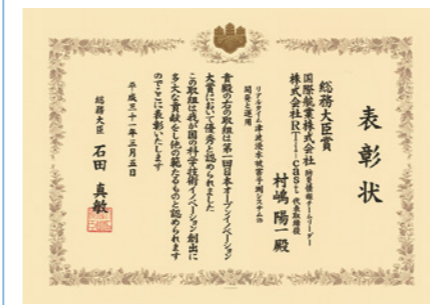 表彰状
総務大臣賞
国際航業株式会社 防災情報チームリーダー
株式会社RTi-cast 代表取締役
村嶋 陽一 殿
リアルタイム津波浸水被害予測システムの
開発と運用
貴殿の右の取組は第一回日本オープンイノベーション
大賞において優秀と認められました
この取組は我が国の科学技術イノベーション創出に
多大な貢献をし他の範たるものと認められます
のでここに表彰いたします
平成三十一年三月五日
総務大臣 石田 真敏